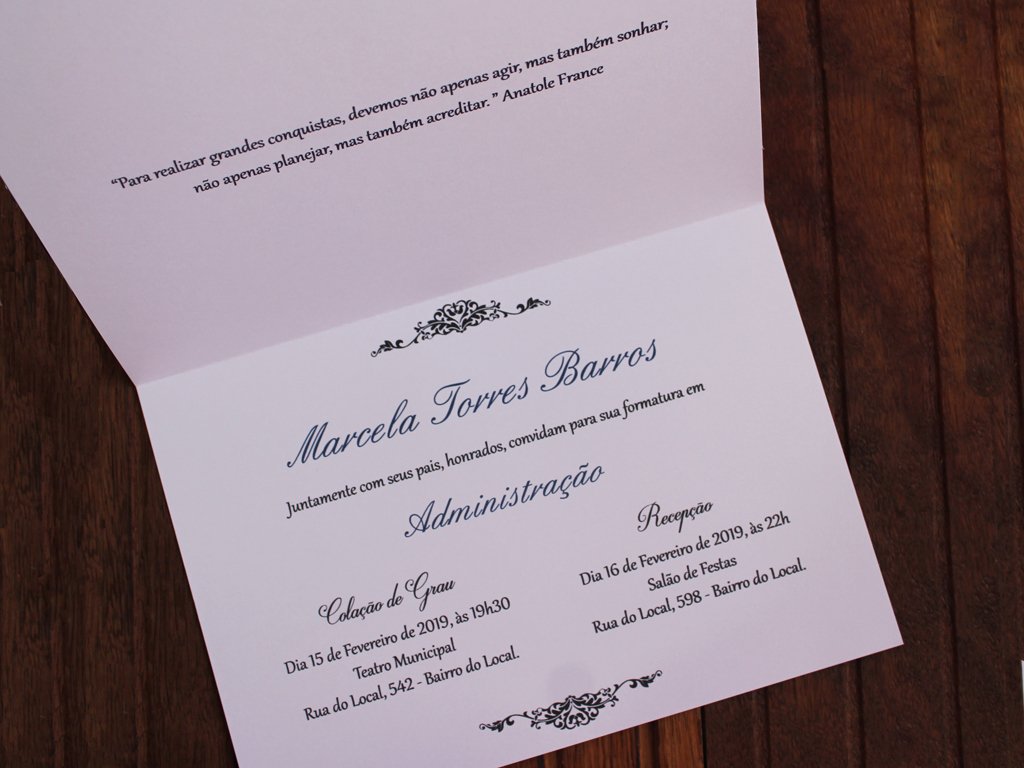 “Para realizar grandes conquistas, devemos não apenas agir, mas também sonhar;
não apenas planejar, mas também acreditar. ” Anatole France
Marcela Torres Barros
Juntamente com seus pais, honrados, convidam para sua formatura em
Administração
Colação de Grau
Dia 15 de Fevereiro de 2019, às 19h30
Teatro Municipal
Rua do Local, 542 - Bairro do Local.
Recepção
Dia 16 de Fevereiro de 2019, às 22h
Salão de Festas
Rua do Local, 598 - Bairro do Local.